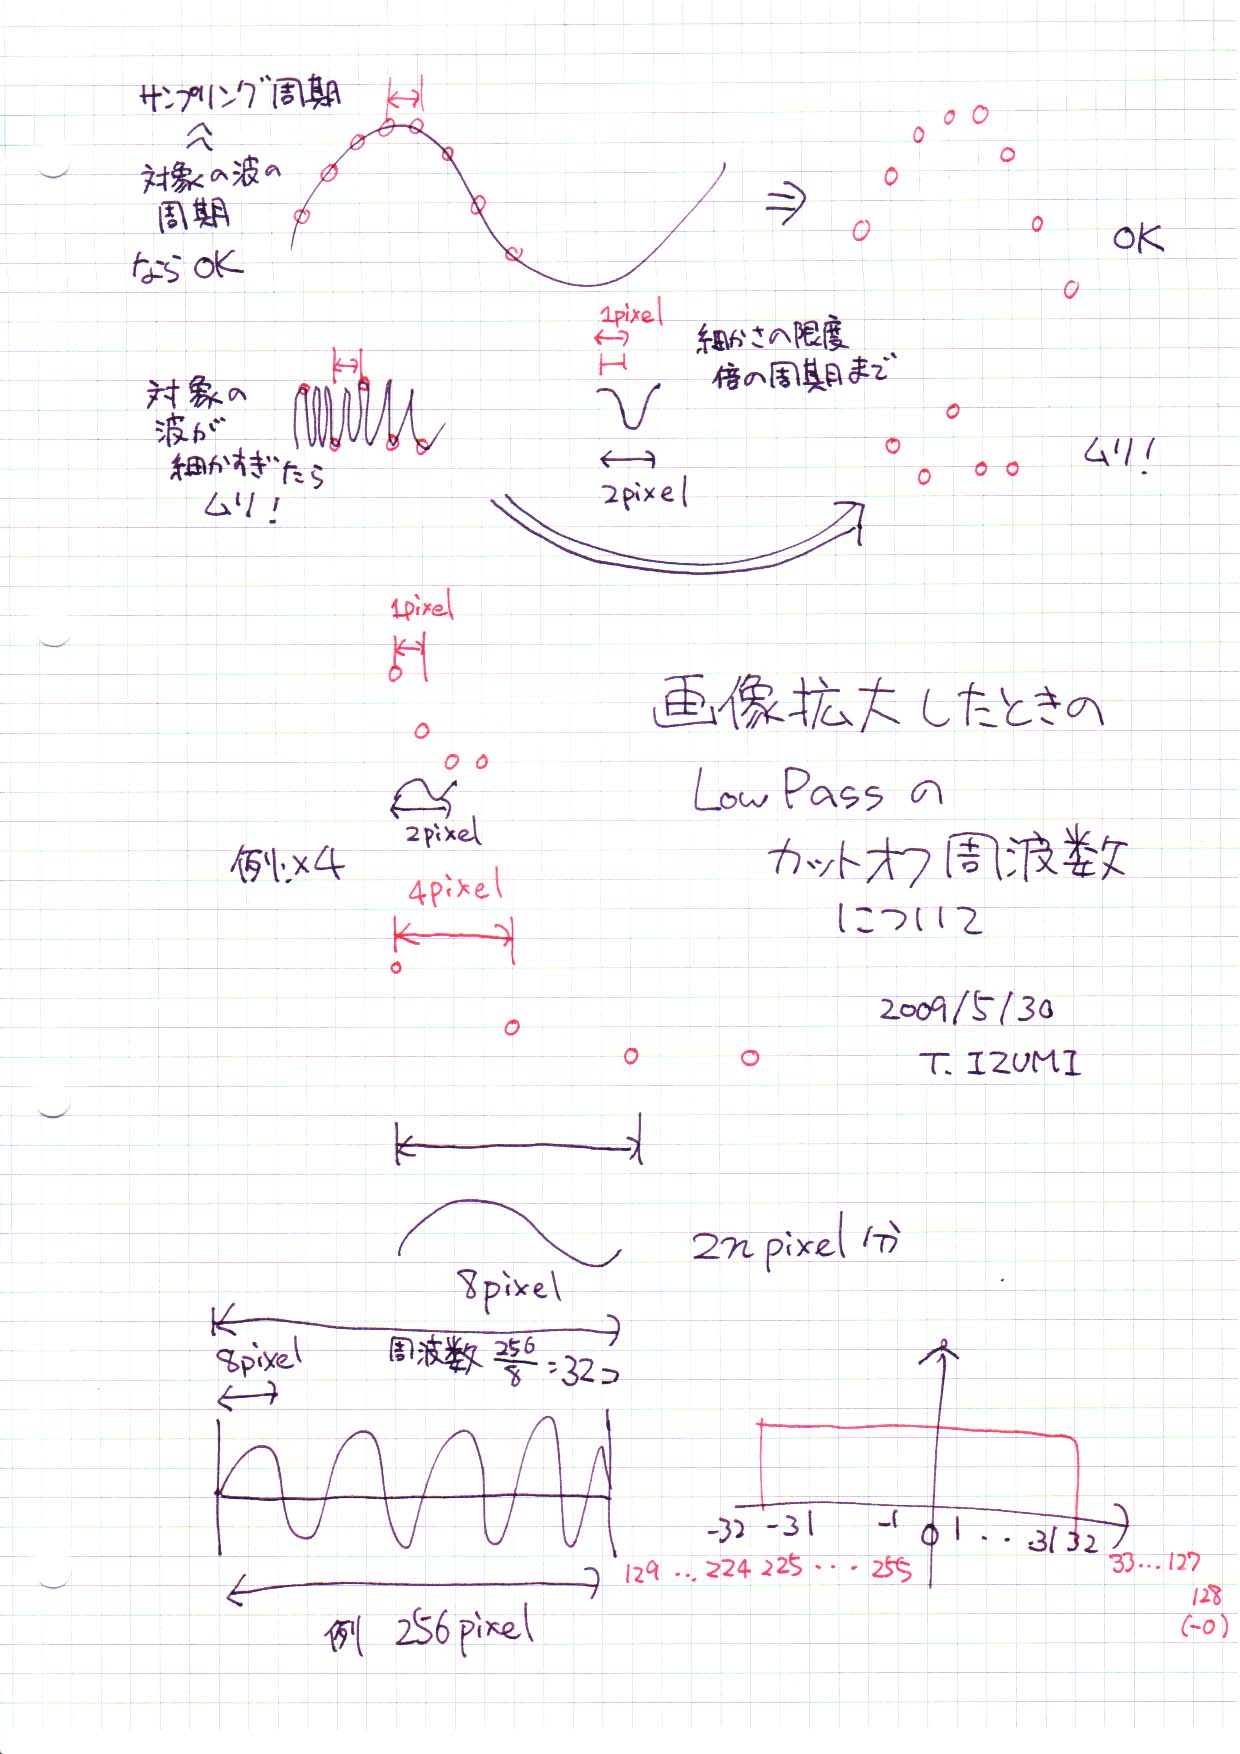 サンプリング周期
≪
対象の波の
周期
ならOK
OK
1pixel
細かさの限度
倍の周期まで
対象の
波が
細かすぎたら
ムリ!
2pixel
ムリ!
1pixel
画像拡大したときの
Low Passの
カットオフ周波数
について
2pixel
例:×4
4pixel
2009/5/30
T. IZUMI
2n pixel分
8pixel
8pixel
周波数 256/8 = 32コ
-32 -31 -1 0 1 ... 31 32
129 ... 224 225 ... 255 33 ... 127
128
(-0)
例 256pixel